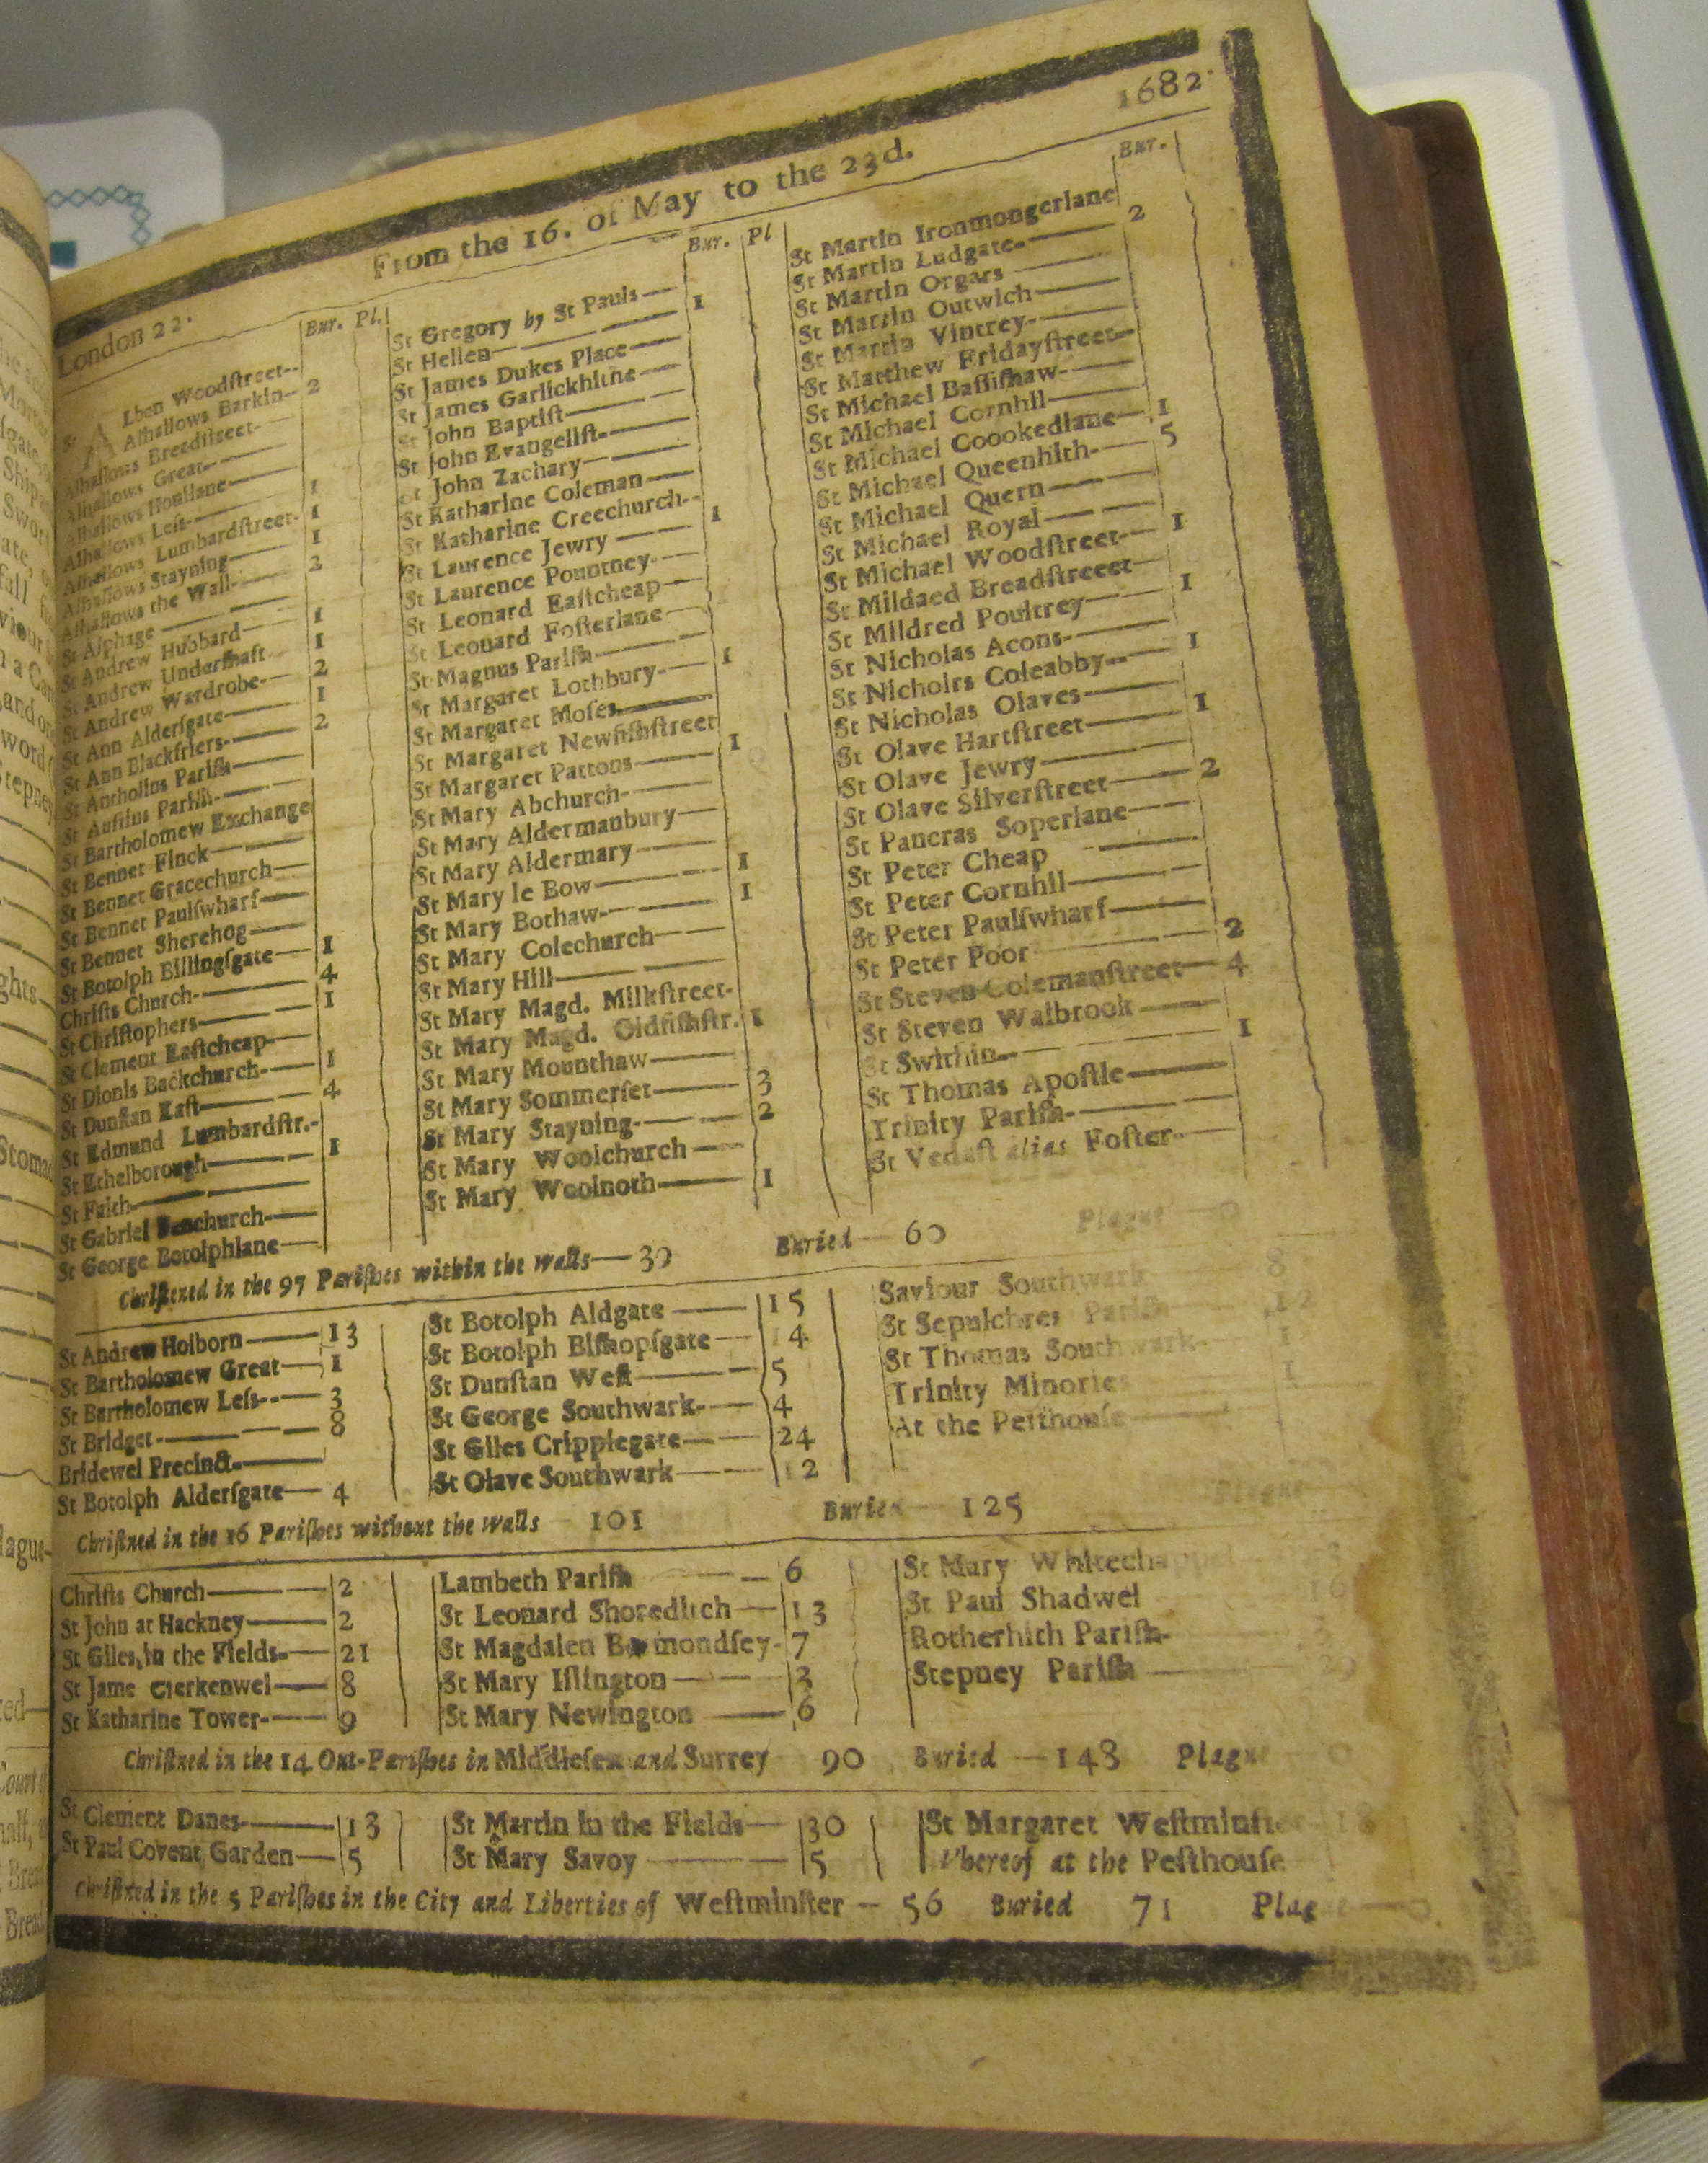 London 22.
From the 16. of May to the 23d.
1682.
Bur. Pl.
St Alban Woodſtreet--
Alhallows Barkin-- 2
Alhallows Breadſtreet-
Alhallows Great--
Alhallows Honilane—
Alhallows Leſs- 1
Alhallows Lumbardſtreet- 1
Alhallows Stayning— 1
Alhallows the Wall- 2
St Alphage —
St Andrew Hubbard— 1
St Andrew Underſhaft 1
St Andrew Wardrobe- 2
St Ann Alderſgate— 1
St Ann Blackfriers- 2
St Antholins Pariſh-
St Auſtins Pariſh-
St Bartholomew Exchange
St Bennet Finck—
St Bennet Gracechurch—
St Bennet Paulſwharf—
St Bennet Sherehog—
St Botolph Billingſgate— 1
Chriſts Church- 4
St Chriſtophers— 1
St Clement Eaſtcheap-
St Dionis Backchurch- 1
St Dunſtan Eaſt— 4
St Edmund Lumbardſtr.-
St Ethelborough— 1
St Faith—
St Gabriel Fenchurch-
St George Botolphlane—
Bur. Pl
St Gregory by St Pauls—
St Hellen— 1
St James Dukes Place—
St James Garlickhithe—
St John Baptiſt—
St John Evangeliſt-
St John Zachary—
St Katharine Coleman—
St Katharine Creechurch--
St Laurence Jewry — 1
St Laurence Pountney-
St Leonard Eaſtcheap—
St Leonard Foſterlane
St Magnus Pariſh—
St Margaret Lothbury- 1
St Margaret Moſes—
St Margaret Newfiſhſtreet
St Margaret Pattons— 1
St Mary Abchurch-
St Mary Aldermanbury—
St Mary Aldermary—
St Mary le Bow— 1
St Mary Bothaw- 1
St Mary Colechurch—
St Mary Hill—
St Mary Magd. Milkſtreet-
St Mary Magd. Oldfiſhſtr. 1
St Mary Mounthaw—
St Mary Sommerſet— 3
St Mary Stayning- 2
St Mary Woolchurch—
St Mary Woolnoth— 1
Bur.
St Martin Ironmongerlane
St Martin Ludgate- 2
St Martin Orgars —
St Martin Outwich—
St Martin Vintrey-
St Matthew Fridayſtreet-
St Michael Baſſiſhaw-
St Michael Cornhil—
St Michael Coookedlane— 1
St Michael Queenhith- 5
St Michael Quern—
St Michael Royal—
St Michael Woodſtreet- 1
St Mildaed Breadſtreeet—
St Mildred Poultrey— 1
St Nicholas Acons-
St Nicholrs Coleabby-- 1
St Nicholas Olaves—
St Olave Hartſtreet— 1
St Olave Jewry—
St Olave Silverſtreet— 2
St Pancras Soperlane—
St Peter Cheap —
St Peter Cornhil—
St Peter Paulſwharf—
St Peter Poor — 2
St Steven Colemanſtreet— 4
St Steven Walbrook —
St Swithin-- 1
St Thomas Apoſtle—
Trinity Pariſh-
St Vedaſt alias Foſter-
Chriſtned in the 97 Pariſhes within the walls— 30 Buried— 60 Plague— 0
St Andrew Holborn— 13
St Bartholomew Great— 1
St Bartholomew Leſs-- 3
St Bridget- 8
Bridewel Precinct-
St Botolph Alderſgate— 4
St Botolph Aldgate — 15
St Botolph Biſhopſgate— 14
St Dunſtan Weſt— 5
St George Southwark- 4
St Giles Cripplegate— 24
St Olave Southwark— 12
Saviour Southwark 8
St Sepulchres Pariſh 12
St Thomas Southwark- 1
Trinity Minories 1
At the Peſthouſe—
Chriſtned in the 16 Pariſhes without the walls — 101 Buried — 125 Plague
Chriſts Church— 2
St John at Hackney— 2
St Giles in the Fields- 21
St Jame Clerkenwel— 8
St Katharine Tower- 9
Lambeth Pariſh — 6
St Leonard Shoreditch— 13
St Magdalen Bermondſey- 7
St Mary Iſlington— 3
St Mary Newington — 6
St Mary Whitechappel
St Paul Shadwel 16
Rotherhith Pariſh-
Stepney Pariſh — 29
Chriſtned in the 14 Out-Pariſhes in Middleſex and Surrey 90 Buried — 148 Plague 0
St Clement Danes- 13
St Paul Covent Garden— 5
St Martin in the Fields— 30
St Mary Savoy — 5
St Margaret Weſtminſter 18
Whereof at the Peſthouſe
Chriſtned in the 5 Pariſhes in the City and Liberties of Weſtminſter — 56 Buried 71 Plague — 0